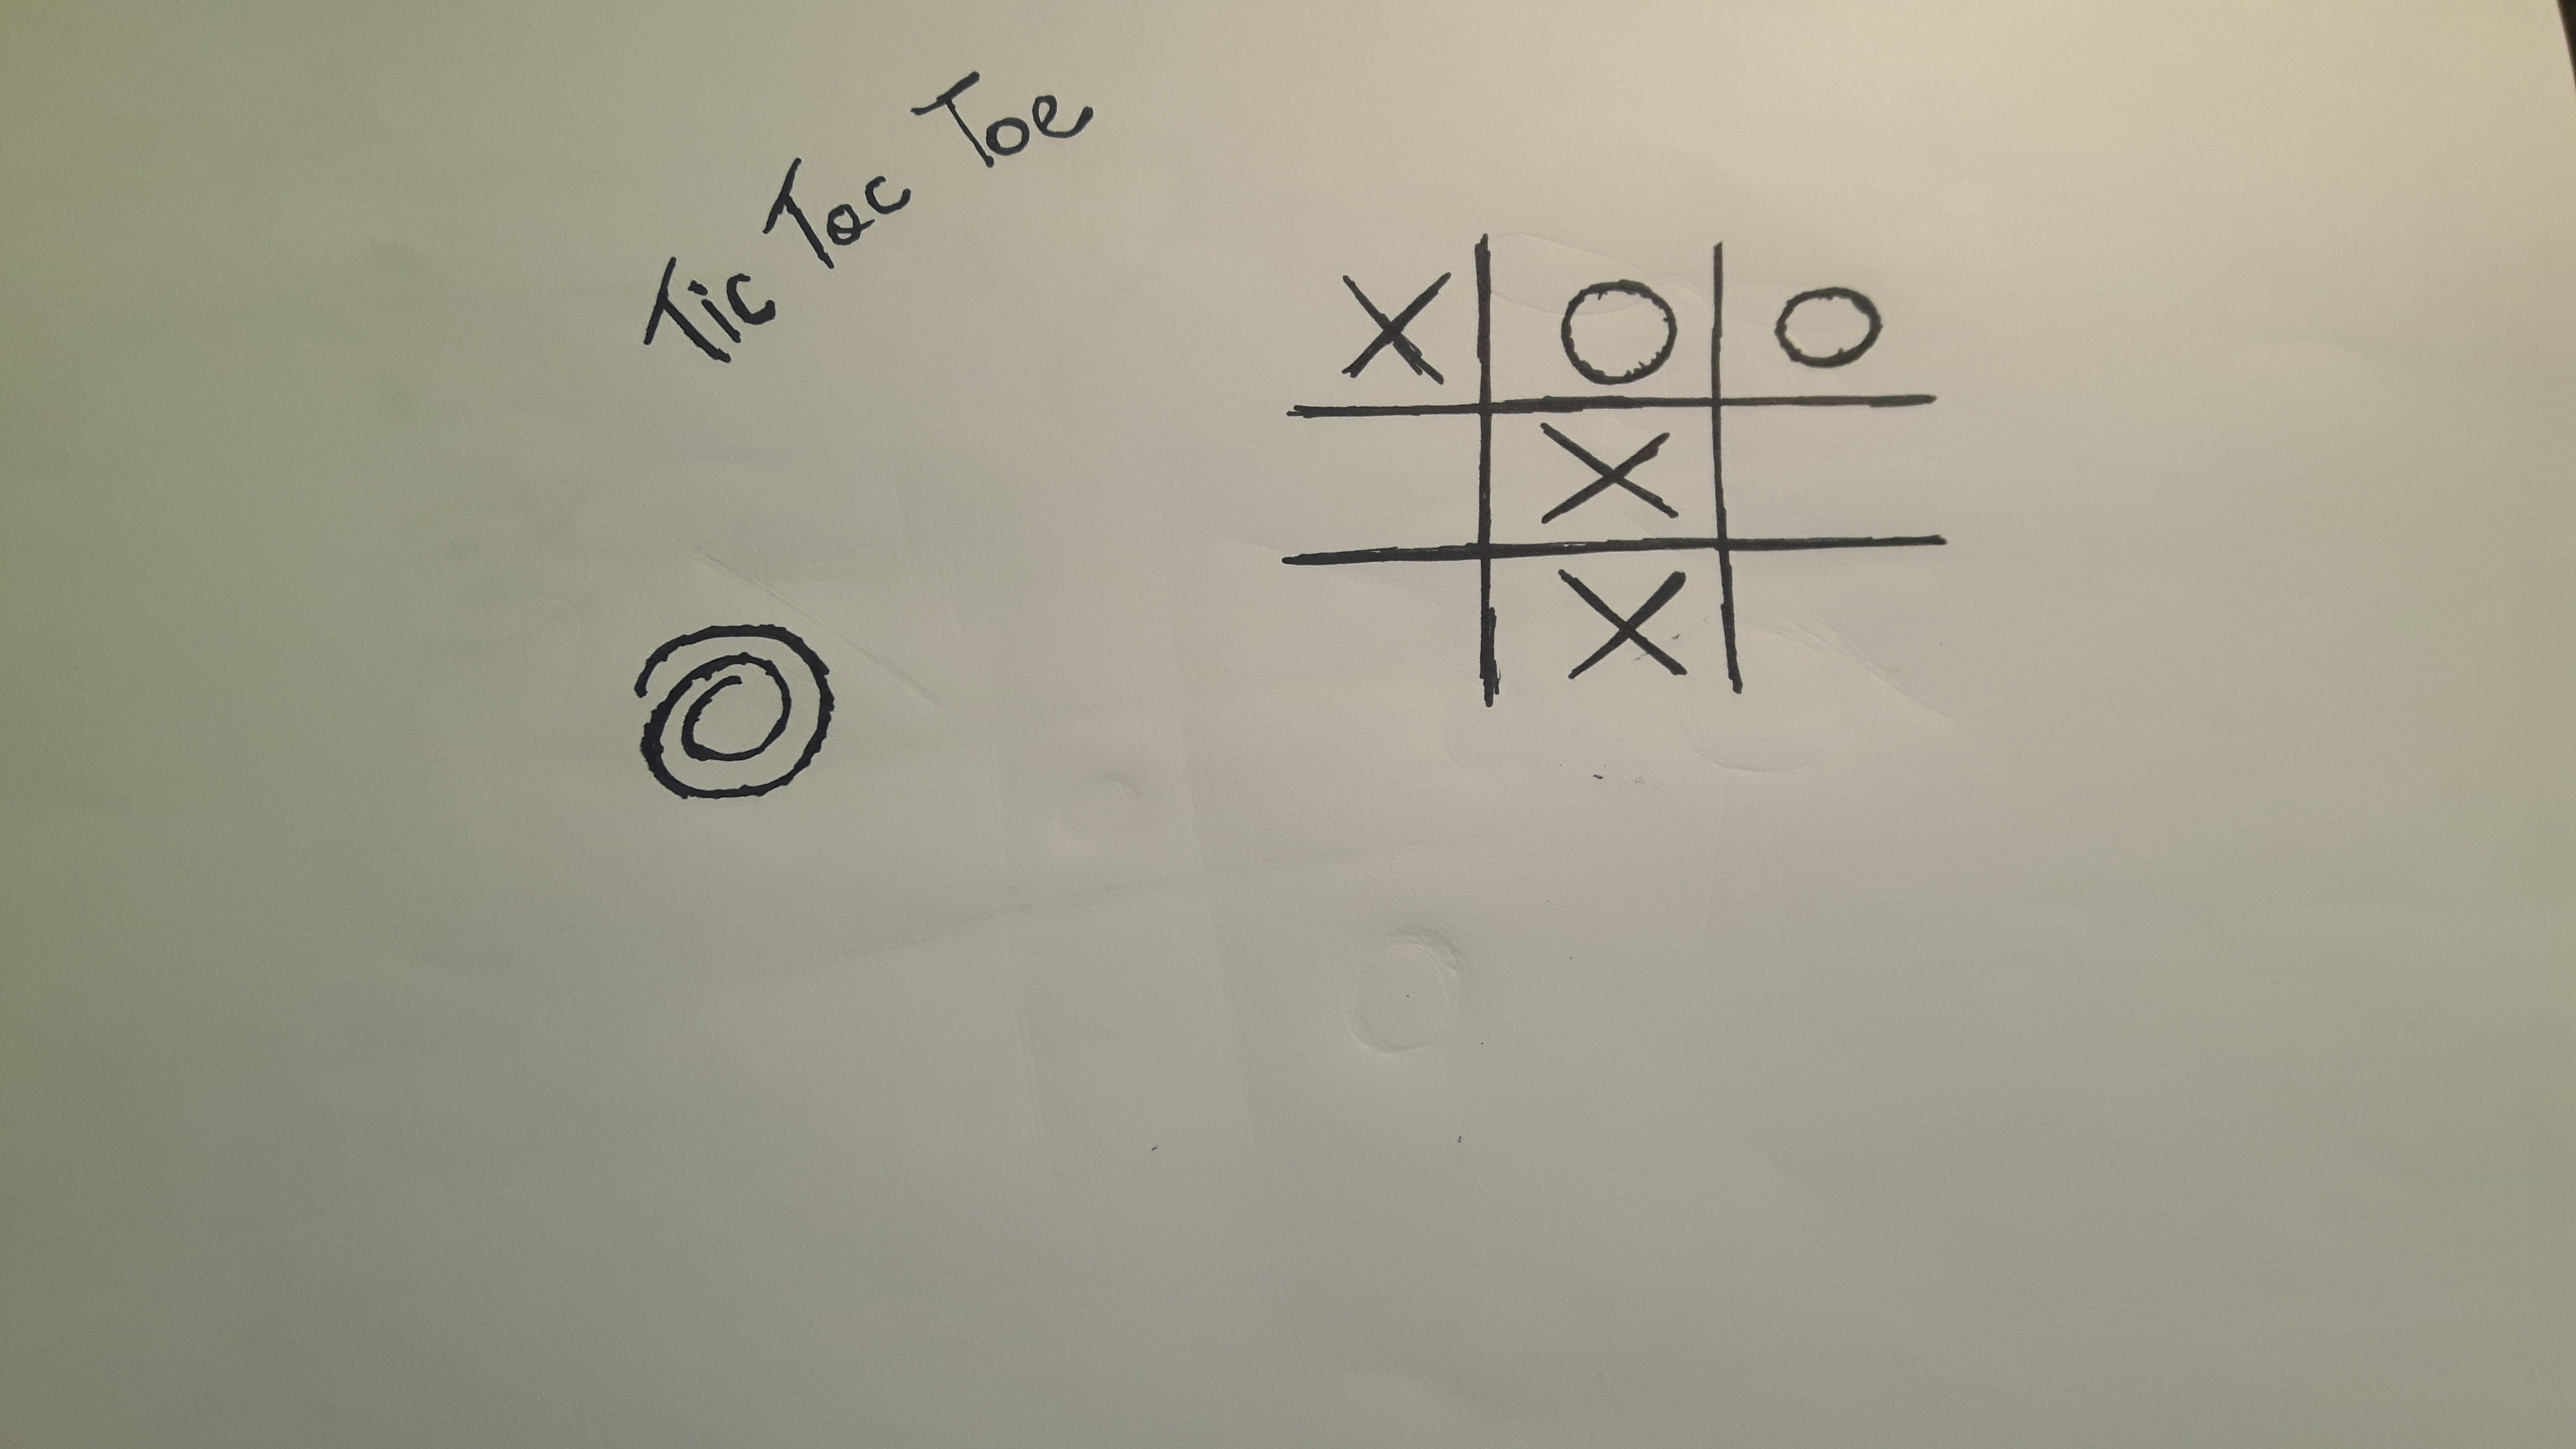 Tic Tac Toe
X O O
X
X